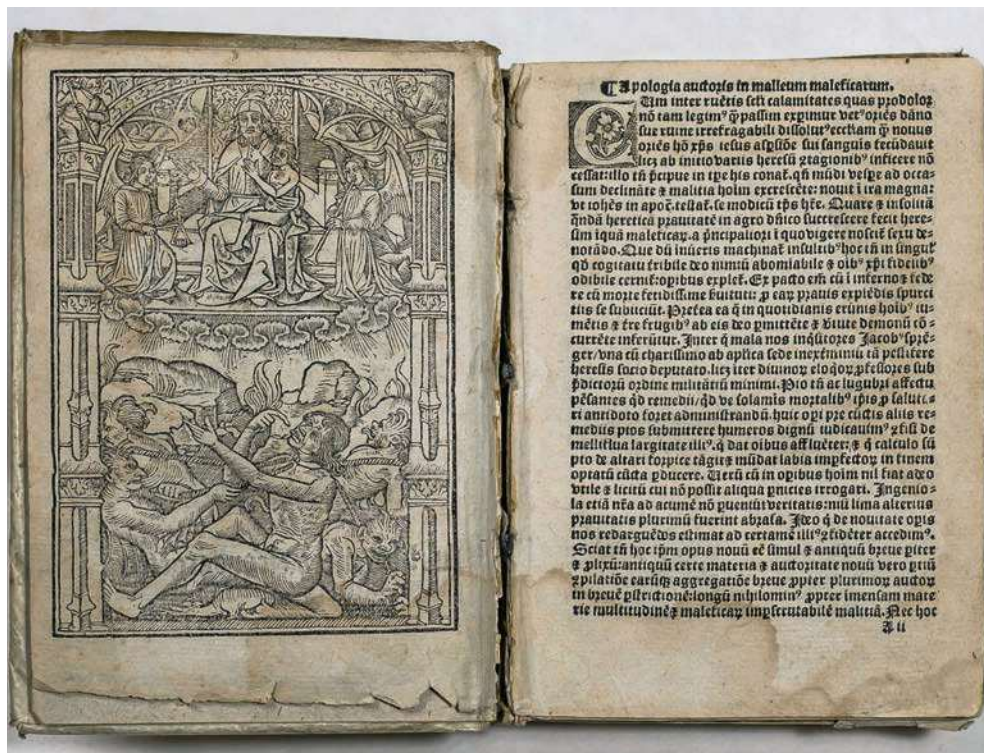 ¶ Apologia auctoris in malleum maleficarum.
Cum inter ruētis seculi calamitates quas prodoloꝛ
nō tam legimꝰ qͥ passim expimur vetꝰ oriēs dāno
sue ruine irrefragabili dissolutꝰ eccłiam q̄ nouus
oriēs hō xp̄s iesus asꝑsiōe sui sanguīs fecūdauit
licꝫ ab initio variis heresū ↄtagionibꝰ inficere nō
cessat: illo tn̄ p̄cipue in tꝑe his conat̄. qn̄ mūdi vesꝑe ad occa⸗
sum declināte ⁊ malitia hoīm excrescēte: nouit ī ira magna:
vt iohēs in apoc̄. testat̄. se modicū tp̄s hr̄e. Quare ⁊ insolitā
qͣndā heretica prauitatē in agro dn̄ico succrescere fecit here⸗
sim īquā maleficaꝝ. a p̄ncipaliori ī quo vigere noscit̄ sexu de⸗
notādo. Que dū inūeris machinat̄ insultibꝰ hoc tn̄ in singul̄
qd̄ cogitatu tribile deo nimiū abomiabile ⁊ oībꝰ xp̄i fidelibꝰ
odibile cernit̄: opibus explet̄. Ex pacto em̄ cū ī inferno ⁊ fede
re cū morte fetidissime ꝑuituti: ꝓ eaꝝ prauis explēdis spurci
tiis se subiiciūt. Pret̄ea ea q̄ in quotidianis erūnis hoībꝰ iu⸗
mētis ⁊ tr̄e frugibꝰ ab eis deo ꝑmittēte ⁊ ꝟtute demonū cō⸗
currēte inferūtur. Inter q̄ mala nos inq̄sitores Jacobꝰ sprē⸗
ger/vna cū charissimo ab ap̄lica sede in ext̄miniū tā pestifere
heresis socio deputato. licꝫ iter diuinoꝝ eloqͦꝝ ꝓfessores sub
p̄dictoꝝ ordine militātiū minimi. Pio tn̄ ac lugubri affectu
pēsantes qd̄ remedii/qd̄ ve solamīs mortalibꝰ ip̄is ꝓ saluta⸗
ri antidoto foret administrandū. huic opi pre cūctis aliis re⸗
mediis pios submittere humeros dignū iudicauimꝰ ↄfisi de
melliflua largitate illiꝰ. q̄ dat oībus affluēter: ⁊ q̄ calculo sū
pto de altari forpice tāgit ⁊ mūdat labia imꝑfectoꝝ in finem
optatū cūcta ꝑducere. Verū cū in opibus hoīm nil fiat adeo
vtile ⁊ licitū cui nō possit aliqua ꝑnicies irrogari. Ingenio⸗
la etiā nr̄a ad acumē nō ꝑueniūt veritatis: niū lima alterius
prauitatis plurimū fuerint abrasa. Ideo q̄ de nouitate opis
nos redarguēdos estimat ad certamē illiꝰ ↄfidēter accedimꝰ.
Sciat tn̄ hoc ip̄m opus nouū eē simul ⁊ antiquū breue pīter
⁊ ꝓlixū: antiquū certe materia ⁊ auctoritate nouū vero ꝑtiū
ↄpilatiōe earūqꝫ aggregatiōe breue ꝓpter plurimoꝝ auctoꝝ
in breuē ꝑstrictionē: longū nihilominꝰ ꝓpter imensam mate
rie multitudinē ⁊ maleficaꝝ imꝑscrutabilē malitiā. Nec hoc
A ii